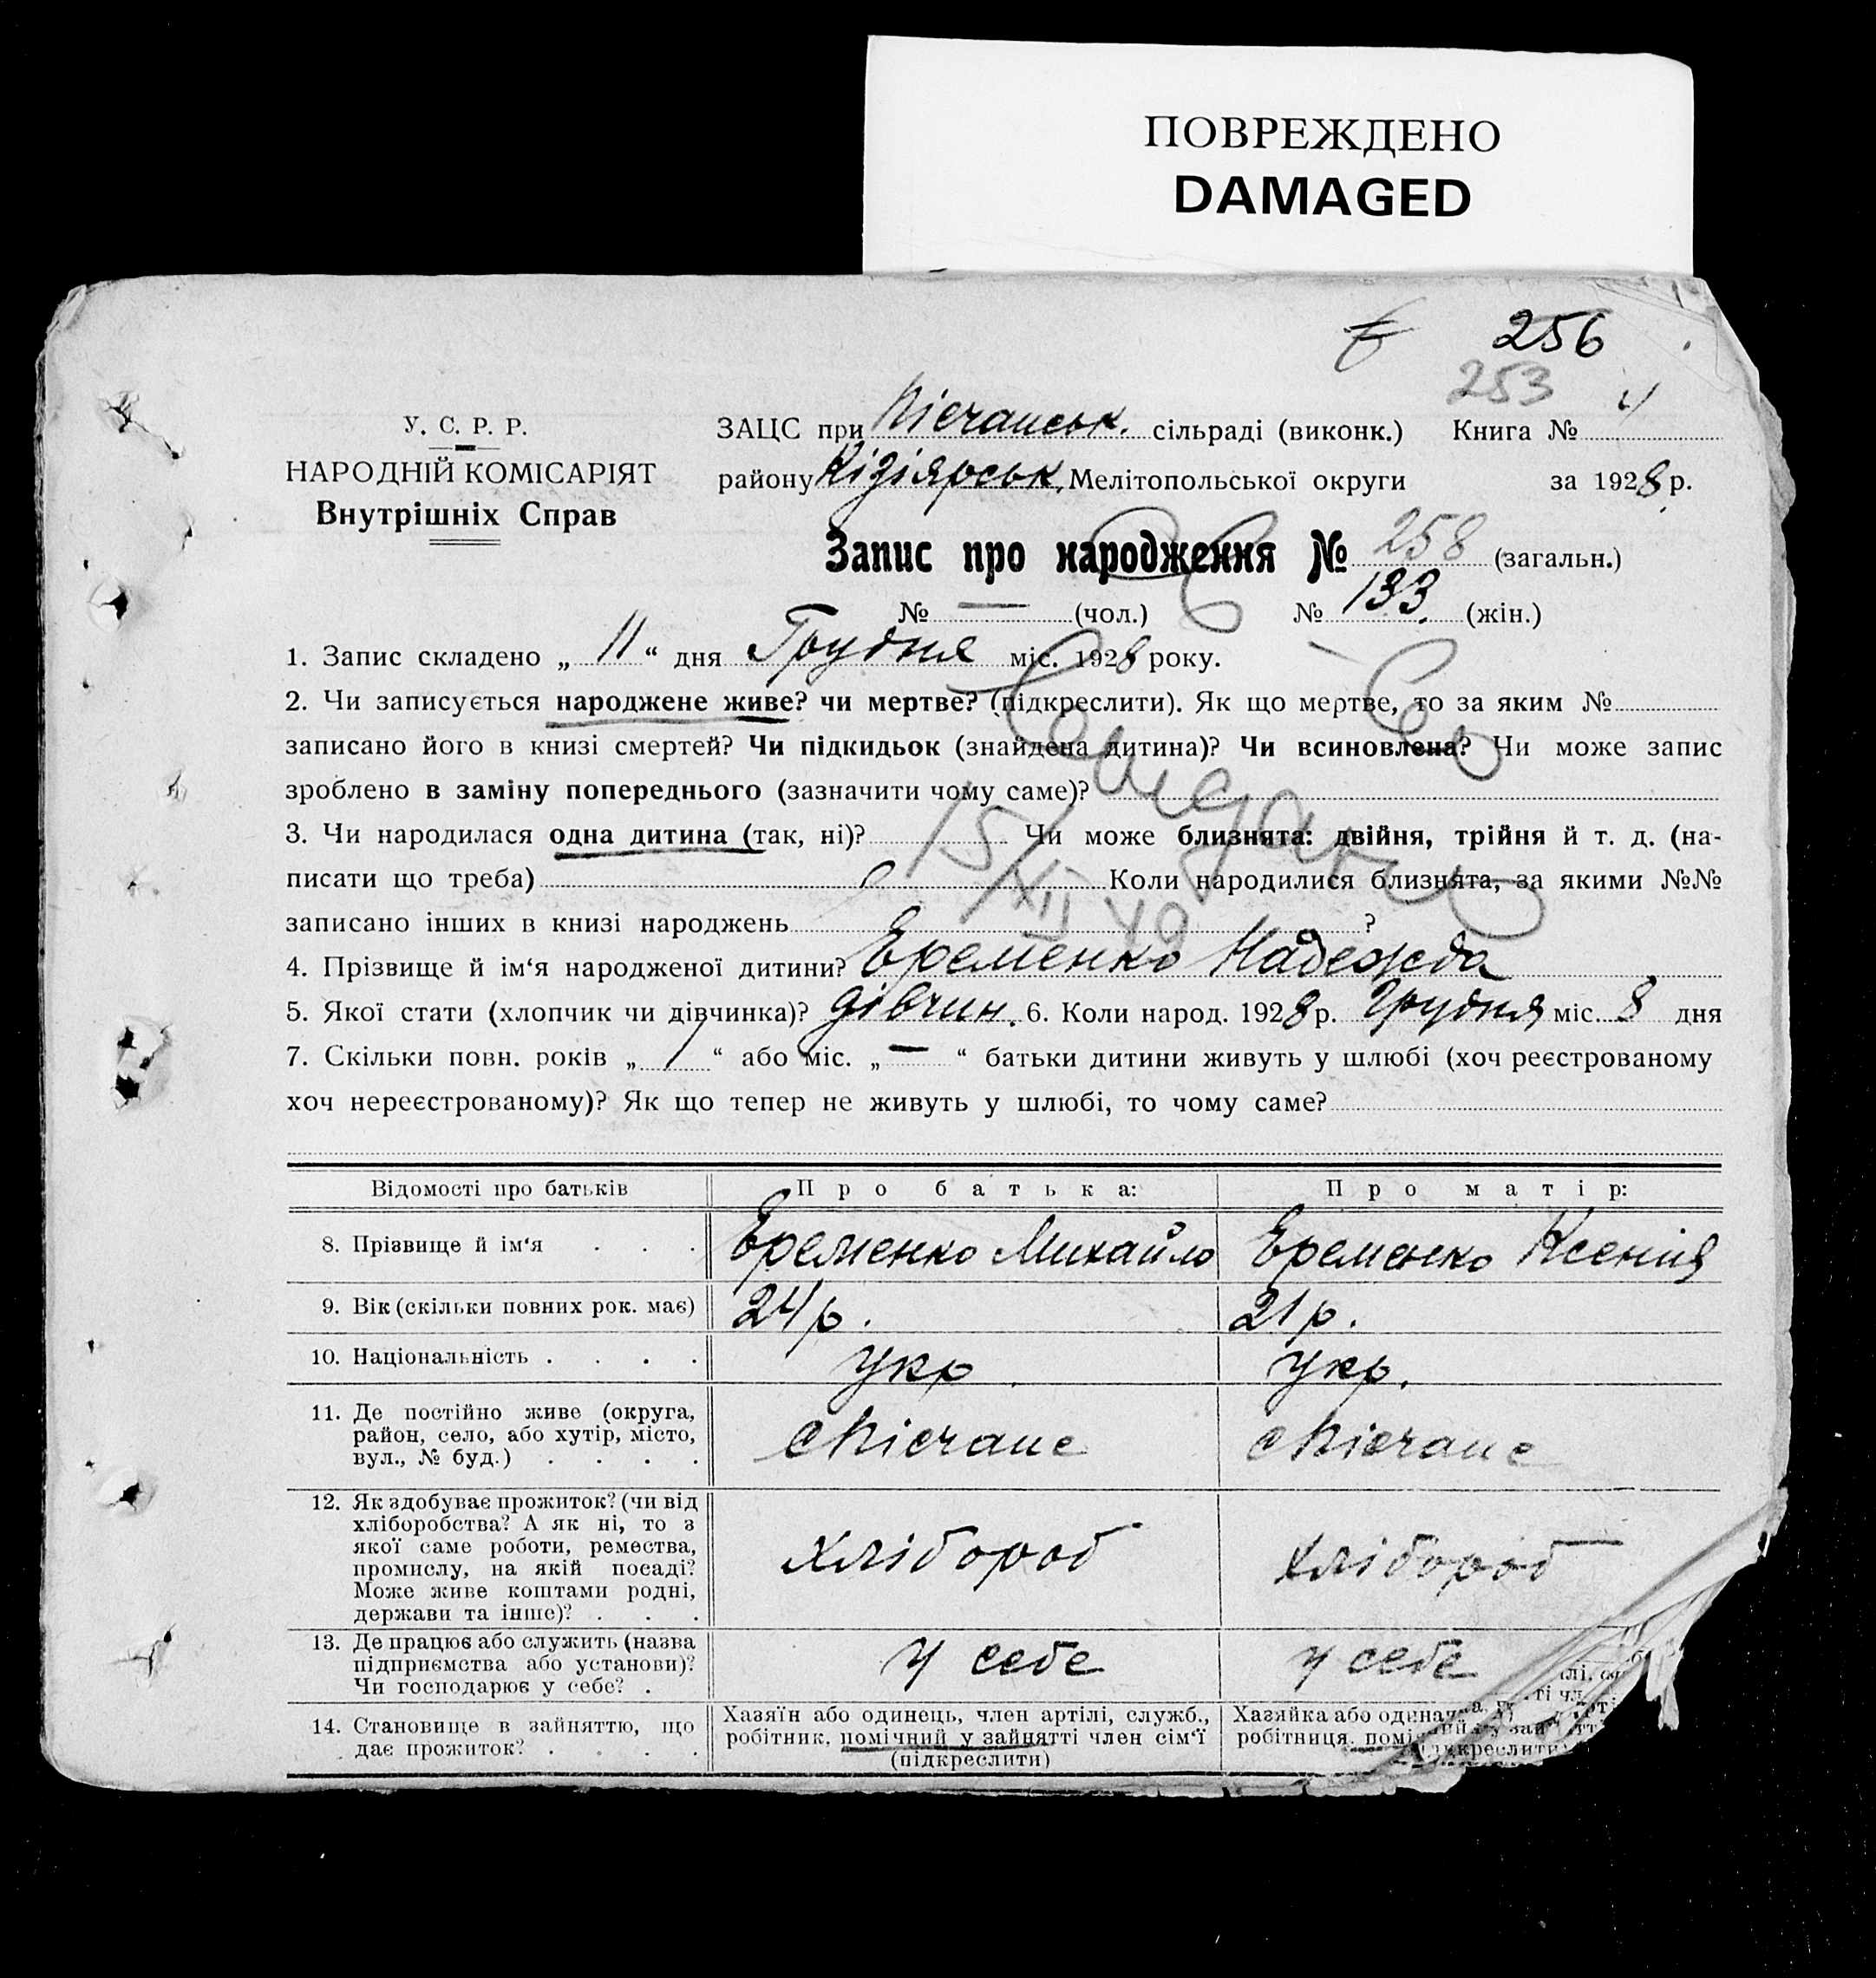 ПОВРЕЖДЕНО
DAMAGED
256
253
У. С. Р. Р.
НАРОДНІЙ КОМІСАРІЯТ
Внутрішніх Справ
ЗАЦС при Пісчанськ. сільраді (виконк.) Книга № 4
району Кізіярськ. Мелітопольської округи за 1928 р.
Запис про народження № 258 (загальн.)
№ — (чол.) № 133. (жін.)
1. Запис складено „ 11 “ дня Грудня міс. 1928 року.
2. Чи записується народжене живе? чи мертве? (підкреслити). Як що мертве, то за яким №
записано його в книзі смертей? Чи підкидьок (знайдена дитина)? Чи всиновлена? Чи може запис
зроблено в заміну попереднього (зазначити чому саме)?
3. Чи народилася одна дитина (так, ні)? Чи може близнята: двійня, трійня й т. д. (на-
писати що треба) Коли народилися близнята, за якими №№
записано інших в книзі народжень ?
15/XII 40
4. Прізвище й ім‘я народженої дитини? Еременко Надежда
5. Якої стати (хлопчик чи дівчинка)? дівчин. 6. Коли народ. 1928 р. Грудня міс. 8 дня
7. Скільки повн. років „ 1 “ або міс. „ — “ батьки дитини живуть у шлюбі (хоч реєстрованому
хоч нереєстрованому)? Як що тепер не живуть у шлюбі, то чому саме?
Відомості про батьків Про батька: Про матір:
8. Прізвище й ім‘я . . . Еременко Михайло Еременко Ксенія
9. Вік (скільки повних рок. має) 24 р. 21 р.
10. Національність . . . . укр. укр.
11. Де постійно живе (округа,
район, село, або хутір, місто,
вул., № буд.) . . . .
с Пісчане с Пісчане
12. Як здобуває прожиток? (чи від
хліборобства? А як ні, то з
якої саме роботи, ремества,
промислу, на якій посаді?
Може живе коштами родні,
держави та інше)? . . .
хлібороб хлібороб
13. Де працює або служить (назва
підприємства або установи)?
Чи господарює у себе? .
у себе у себе
14. Становище в зайняттю, що
дає прожиток? . . . .
Хазяїн або одинець, член артілі, служб.,
робітник, помічний у зайнятті член сім‘ї
(підкреслити)
Хазяйка або
робітниця